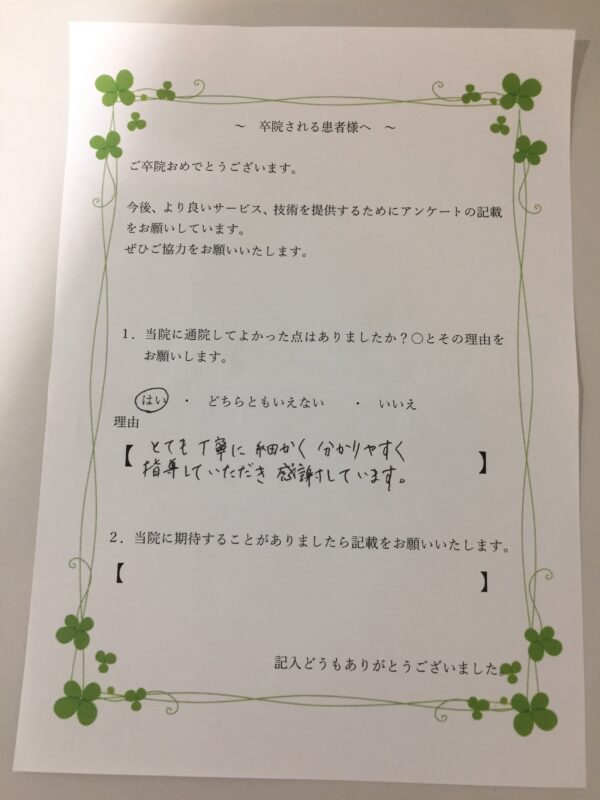 ～ 卒院される患者様へ ～
ご卒院おめでとうございます。
今後、より良いサービス、技術を提供するためにアンケートの記載
をお願いしています。
ぜひご協力をお願いいたします。
１．当院に通院してよかった点はありましたか？〇とその理由を
お願いします。
はい ・ どちらともいえない ・ いいえ
理由
【 とても丁寧に細かく分かりやすく
指導していただき感謝しています。 】
２．当院に期待することがありましたら記載をお願いいたします。
【 】
記入どうもありがとうございました。